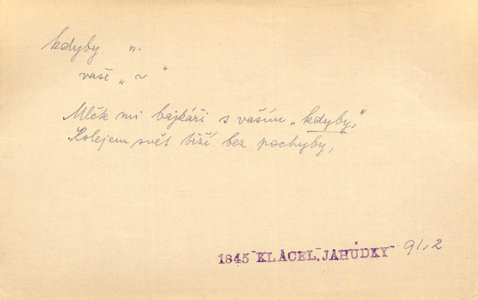 kdyby n.
vaše „~"
Mlčk mi bajkáři s vaším „kdyby,"
Kolejem svět běží bez pochyby,
1845 KLÁCEL, JAHŮDKY 91,2